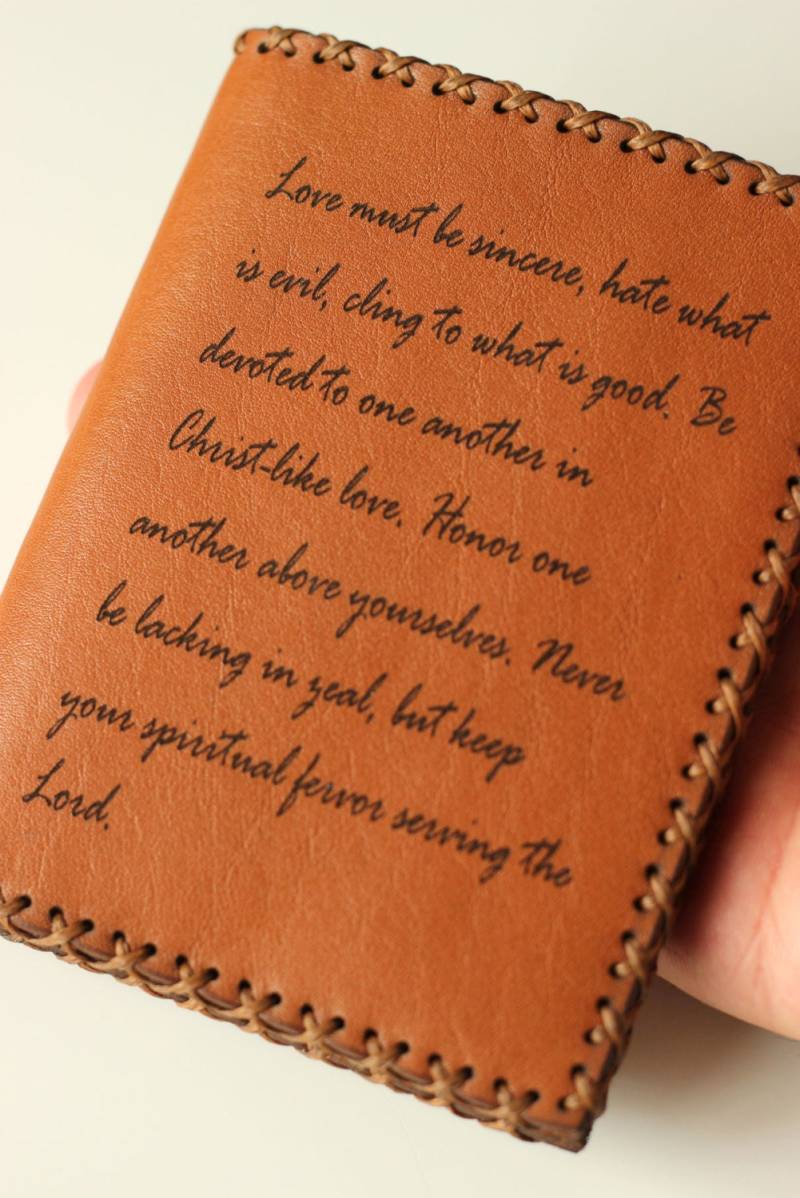 Love must be sincere, hate what
is evil, cling to what is good. Be
devoted to one another in
Christ-like love. Honor one
another above yourselves. Never
be lacking in zeal, but keep
your spiritual fervor serving the
Lord.